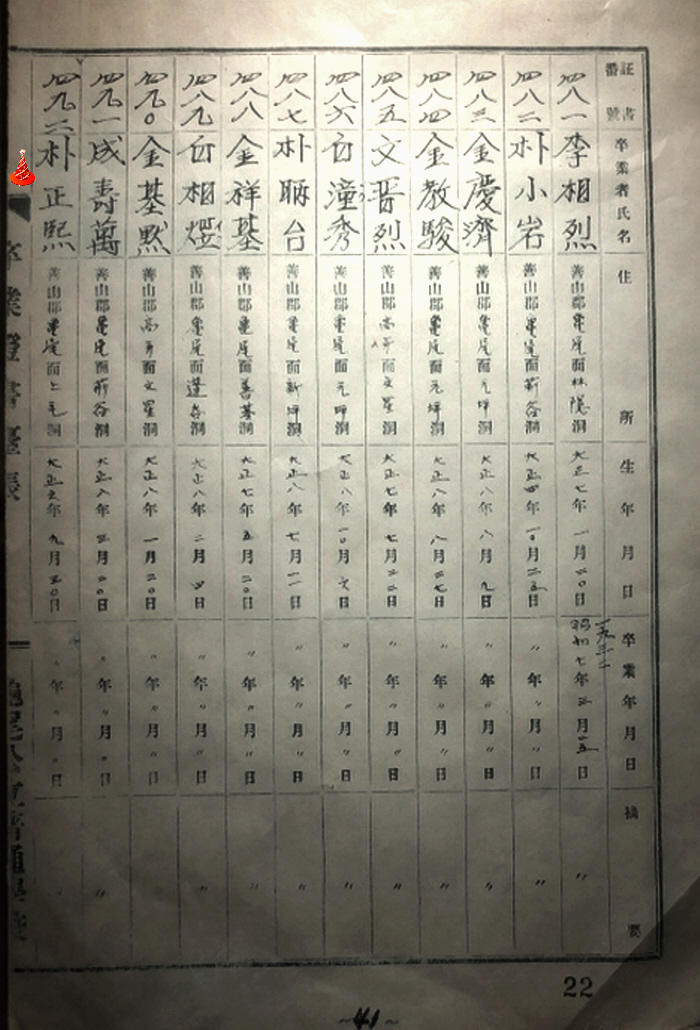 証書番號 卒業者氏名 住所 生年月日 卒業年月日 摘要
四八一 李相烈 善山郡龜尾面林隠洞 大正七年一月二〇日 昭和七年三月二五日 〃
一九三二
四八二 朴小岩 善山郡龜尾面荊谷洞 大正四年一〇月二五日 〃年〃月〃日 〃
四八三 金慶濟 善山郡龜尾面元坪洞 大正八年八月九日 〃年〃月〃日 〃
四八四 金教駿 善山郡龜尾面元坪洞 大正八年八月二七日 〃年〃月〃日 〃
四八五 文晋烈 善山郡高牙面文星洞 大正七年七月二二日 〃年〃月〃日 〃
四八六 白潼秀 善山郡龜尾面元坪洞 大正八年一〇月六日 〃年〃月〃日 〃
四八七 朴昞台 善山郡龜尾面新坪洞 大正八年七月一一日 〃年〃月〃日 〃
四八八 金祥基 善山郡龜尾面善基洞 大正七年五月二〇日 〃年〃月〃日 〃
四八九 白相 善山郡龜尾面蓬谷洞 大正八年二月四日 〃年〃月〃日 〃
四九〇 金基黙 善山郡高牙面文星洞 大正八年一月二〇日 〃年〃月〃日
四九一 成壽萬 善山郡龜尾面荊谷洞 大正八年三月二〇日 〃年〃月〃日 〃
四九二 朴正熙 善山郡龜尾面上毛洞 大正六年九月三〇日 〃年〃月〃日
卒業證書臺帳
龜尾公立普通學校
22
~41~